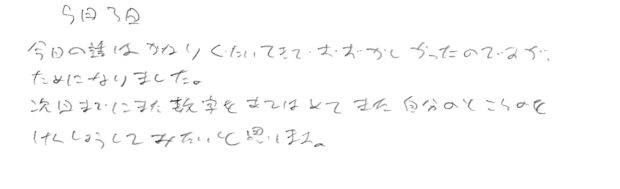 今日の話はかなりぐたいてきでむずかしかったのですが、
ためになりました。
次回までにまた数字をあてはめてまた自分のところのを
けんしょうしてみたいと思います。